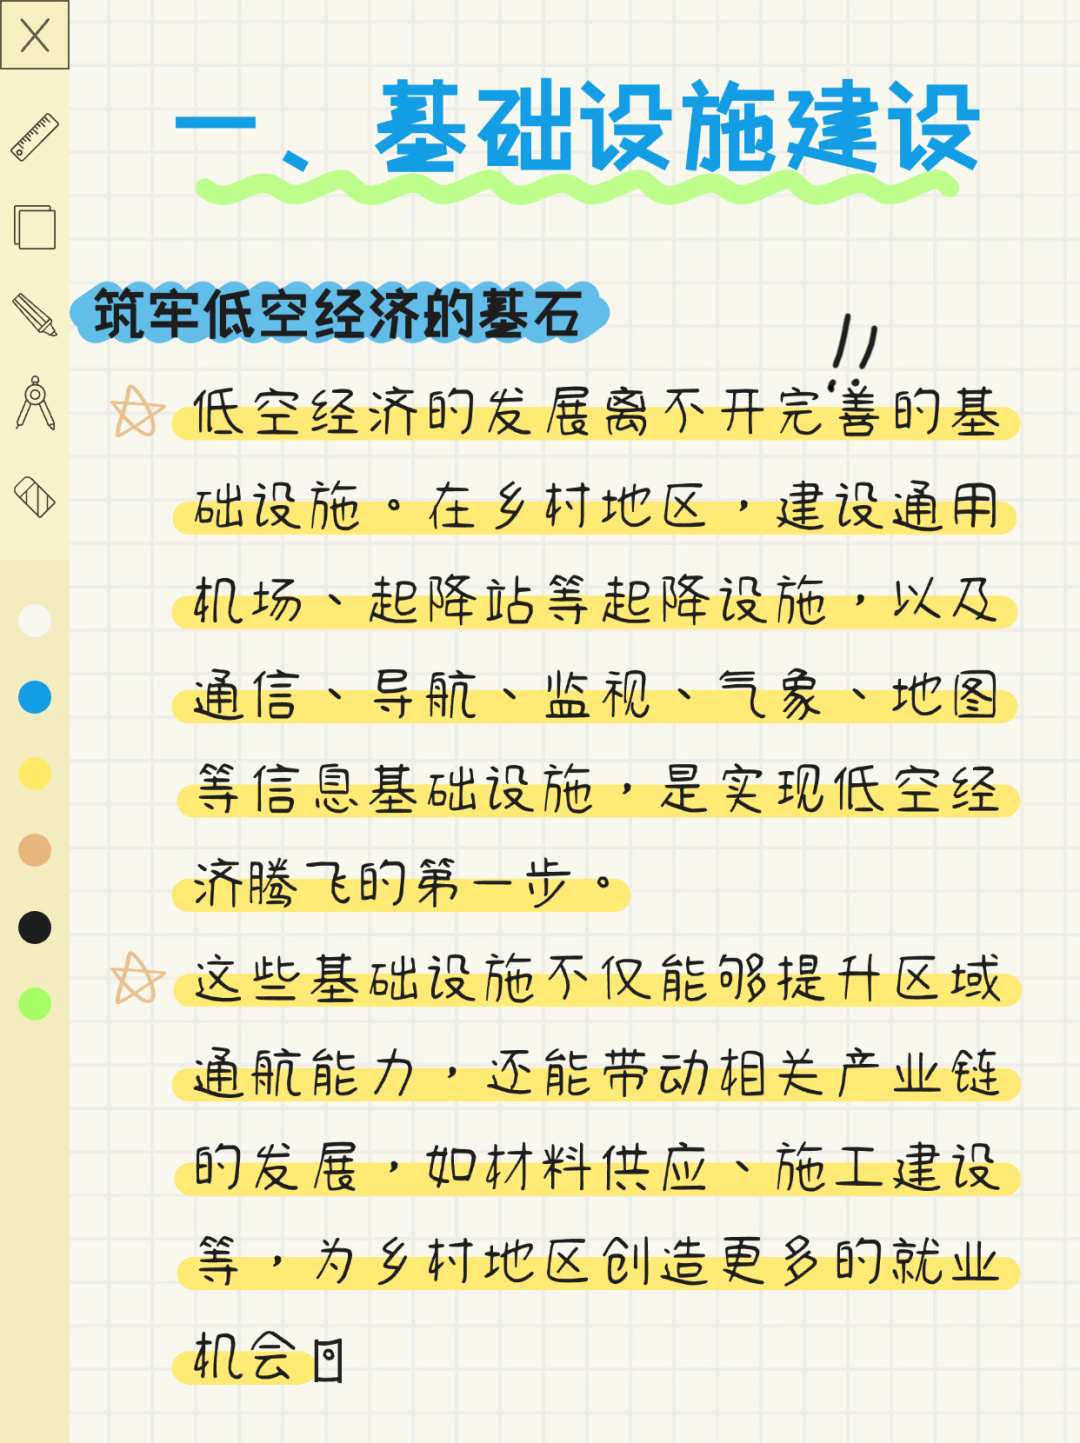 一、基础设施建设
筑牢低空经济的基石
低空经济的发展离不开完善的基
础设施。在乡村地区，建设通用
机场、起降站等起降设施，以及
通信、导航、监视、气象、地图
等信息基础设施，是实现低空经
济腾飞的第一步。
这些基础设施不仅能够提升区域
通航能力，还能带动相关产业链
的发展，如材料供应、施工建设
等，为乡村地区创造更多的就业
机会